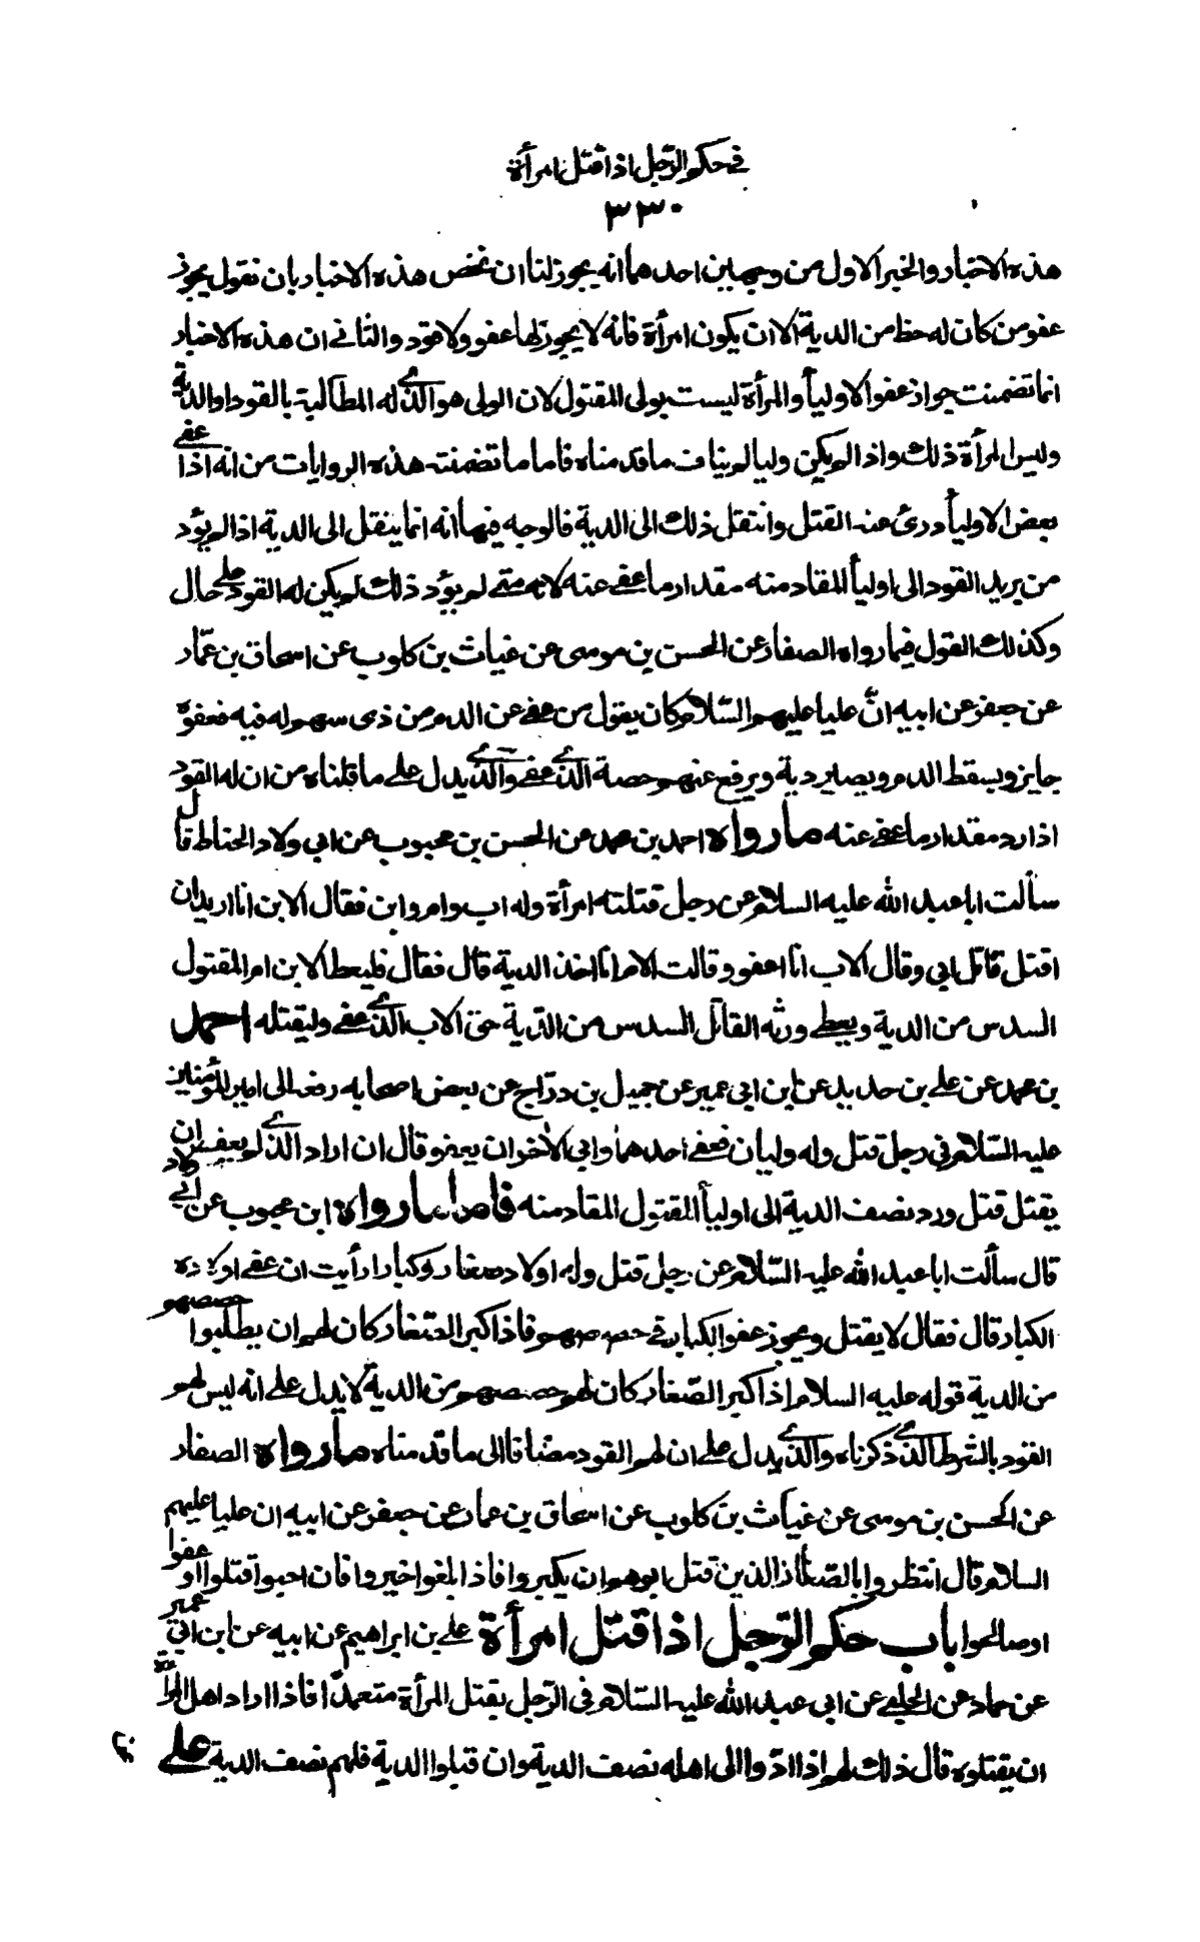 في حكم الرّجل اذا قتل امرأة
٣٣٠
هذه الاخبار والخبر الاول من وجهين احدهما انه يجوز لنا ان نخص هذه الاخبار بان نقول يجوز
عفو من كان له حظ من الدية الا ان يكون امرأة فانه لا يجوز لها عفو ولا قود والثاني ان هذه الاخبار
انما تضمنت جواز عفو الاولياء والمرأة ليست بولى المقتول لان الولى هو الذي له المطالبة بالقود او الدية
وليس للمرأة ذلك واذا لم يكن وليا لم يناف ما قدمناه فاما ما تضمنته هذه الروايات من انه اذا عفى
بعض الاولياء درئ عنه القتل وانتقل ذلك الى الدية فالوجه فيها انه انما ينقل الى الدية اذا لم يؤد
من يريد القود الى اولياء المقاد منه مقدار ما عفى عنه لانه متى لم يؤد ذلك لم يكن له القود على حال
وكذلك القول فيما رواه الصفار عن الحسن بن موسى عن غياث بن كلوب عن اسحاق بن عمّار
عن جعفر عن ابيه انّ عليا عليهم السّلام كان يقول من عفى عن الدم من ذى سهم له فيه فعفوه
جايز ويسقط الدم ويصير دية ويرفع عنهم حصة الذي عفى والذي يدل على ما قلناه من ان له القود
اذا رد مقدار ما عفى عنه ما رواه احمد بن محمد عن الحسن بن محبوب عن ابى ولاد الحناط قال
سألت ابا عبد الله عليه السلام عن رجل قتلته امرأة وله اب وام وابن فقال الابن انا اريد ان
اقتل قاتل ابى وقال الاب انا اعفو وقالت الام انا اخذ الدية قال فقال فليعط الابن ام المقتول
السدس من الدية ويعطى ورثه القاتل السدس من الدّية حق الاب الذي عفى وليقتله احمد
بن محمد عن على بن حديد عن ابن ابى عمير عن جميل بن درّاج عن بعض اصحابه رفعه الى امير المؤمنين
عليه السّلام فى رجل قتل وله وليان فعفى احدهما وابى الأخر ان يعفو قال ان اراد الذي لم يعف ان
يقتل قتل ورد نصف الدية الى اولياء المقتول المقاد منه فاما ما رواه ابن محبوب عن ابي ولاد
قال سألت ابا عبد الله عليه السّلام عن رجل قتل وله اولاد صغار وكبار ارأيت ان عفى اولاده
الكبار قال فقال لا يقتل ويجوز عفو الكبار في حصصهم فاذا كبر الصّغار كان لهم ان يطلبوا حصصهم
من الدية قوله عليه السلام اذا كبر الصّغار كان لهم حصصهم من الدية لا يدل على انه ليس لهم
القود بالشرط الذي ذكرناه والذي يدل على ان لهم القود مضافا الى ما قدمناه ما رواه الصفار
عن الحسن بن موسى عن غياث بن كلوب عن اسحاق بن عمار عن جعفر عن ابيه ان عليا عليهم
السلام قال انتظروا بالصّغار الذين قتل ابوهم ان يكبروا فاذا بلغوا خيروا فان احبوا قتلوا او عفوا
او صالحوا باب حكم الرّجل اذا قتل امرأة على بن ابراهيم عن ابيه عن ابن ابي عمير
عن حماد عن الحلبى عن ابى عبد الله عليه السّلام فى الرّجل يقتل المرأة متعمدّا فاذا اراد اهل المرأة
ان يقتلوه قال ذلك لهم اذا ادّوا الى اهله نصف الدية وان قبلوا الدية فلهم نصف الدية على